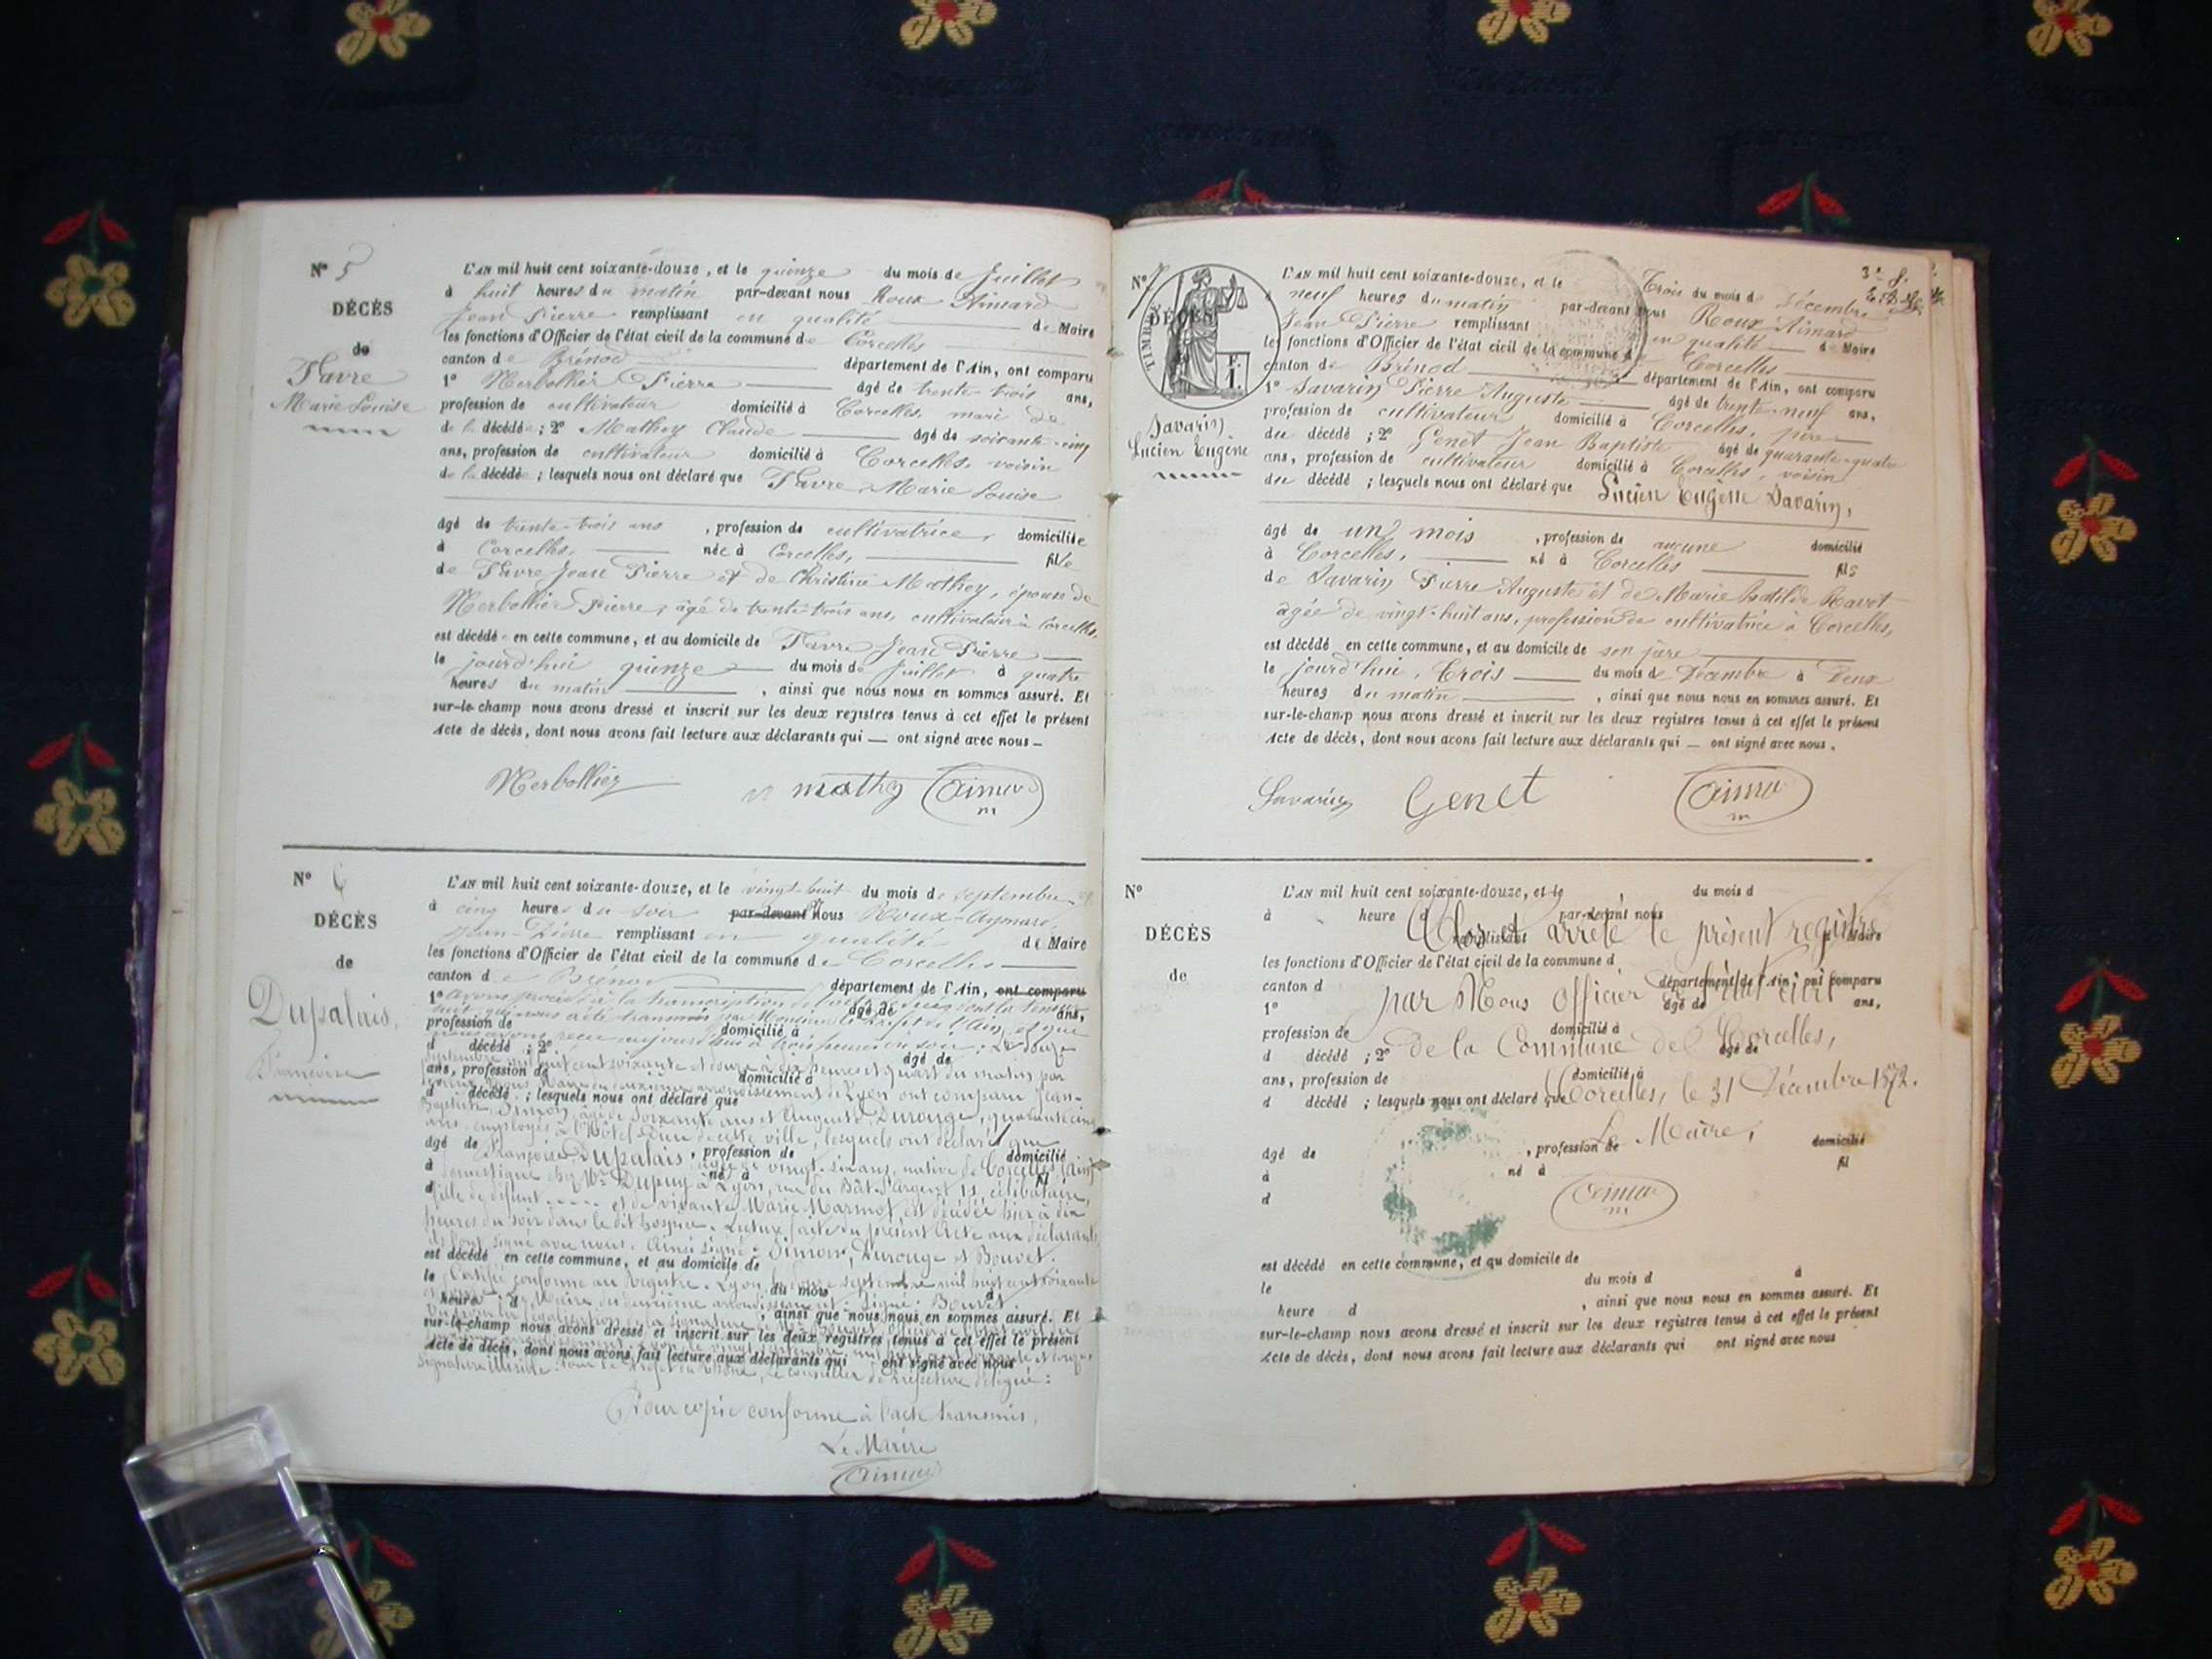 N° 5
DÉCÈS
de
Favre
Marie Louise
L'AN mil huit cent soixante-douze, et le quinze du mois de Juillet
à huit heures du matin par-devant nous Roux Aimard
Jean Pierre remplissant en qualité de Maire
les fonctions d'Officier de l'état civil de la commune de Corcelles
canton de Brénod département de l'Ain, ont comparu
1° Nerbollier Pierre âgé de trente-trois ans,
profession de cultivateur domicilié à Corcelles, mari de
de la décédée ; 2° Mathey Claude âgé de soixante-cinq
ans, profession de cultivateur domicilié à Corcelles, voisin
de la décédée ; lesquels nous ont déclaré que Favre Marie Louise
âgé de trente-trois ans , profession de cultivatrice, domiciliée
à Corcelles, née à Corcelles, fille
de Favre Jean Pierre et de Christine Mathey, épouse de
Nerbollier Pierre, âgé de trente-trois ans, cultivateur à Corcelles,
est décédée en cette commune, et au domicile de Favre Jean Pierre
le jourd'hui quinze du mois de Juillet à quatre
heures du matin , ainsi que nous nous en sommes assuré. Et
sur-le-champ nous avons dressé et inscrit sur les deux registres tenus à cet effet le présent
Acte de décès, dont nous avons fait lecture aux déclarants qui — ont signé avec nous —
Nerbollier mathey aimard
N° 6
DÉCÈS
de
Dupalais,
Françoise
L'AN mil huit cent soixante-douze, et le vingt-huit du mois de septembre
à cinq heures du soir par-devant Nous Roux-Aymard,
Jean-Pierre remplissant en qualité de Maire
les fonctions d'Officier de l'état civil de la commune de Corcelles
canton de Brénod département de l'Ain, ont comparu
1° avons procédé à la transcription de l'acte de décès dont la teneur
âgé de ans,
suit, qui nous a été transmis par Monsieur le Préfet de l'Ain, et que
profession de domicilié à
nous avons reçu aujourd'hui à trois heures du soir : Le douze
d décédé ; 2° âgé de
septembre mil huit cent soixante et douze à dix heures et quart du matin par
ans, profession de domicilié à
devant Nous Maire du deuxième arrondissement de Lyon ont comparu Jean-
d décédé ; lesquels nous ont déclaré que
Baptiste Simon, âgé de soixante ans et Auguste Durouge, quarante cinq
ans, employés à l'Hôtel Dieu de cette ville, lesquels ont déclaré que
âgé de , profession de domicilié
Françoise Dupalais, âgée de vingt-six ans, native de Corcelles (Ain)
à né à fil
domestique chez Mr Dupuy à Lyon, rue du Bât-d'Argent 11, célibataire,
d
fille de défunt .... et de vivante Marie Marmot, est décédée hier à dix
heures du soir dans le dit hospice. Lecture faite du présent Acte aux déclarants
ils l'ont signé avec nous. Ainsi signé : Simon, Durouge et Bouvet.
est décédé en cette commune, et au domicile de
Certifié conforme au Registre. Lyon, le douze septembre mil huit cent soixante
le du mois à
Maire du deuxième arrondissement : Signé : Bouvet
heure d , ainsi que nous nous en sommes assuré. Et
sur-le-champ nous avons dressé et inscrit sur les deux registres tenus à cet effet le présent
Acte de décès, dont nous avons fait lecture aux déclarants qui ont signé avec nous
Signature illisible. Pour le Préfet du Rhône, le conseiller de Préfecture délégué :
Pour copie conforme à l'acte transmis,
Le Maire
aimard
N° 7
TIMBRE
DÉCÈS
F.
1.
Savarin
Lucien Eugène
L'AN mil huit cent soixante-douze, et le Trois du mois de Décembre
à neuf heures du matin par-devant nous Roux Aimard
Jean Pierre remplissant en qualité de Maire
les fonctions d'Officier de l'état civil de la commune de Corcelles
canton de Brénod département de l'Ain, ont comparu
1° Savarin Pierre Auguste âgé de trente-neuf ans,
profession de cultivateur domicilié à Corcelles, père
du décédé ; 2° Genet Jean Baptiste âgé de quarante-quatre
ans, profession de cultivateur domicilié à Corcelles, voisin
du décédé ; lesquels nous ont déclaré que Lucien Eugène Savarin,
âgé de un mois , profession de aucune domicilié
à Corcelles, né à Corcelles fils
de Savarin Pierre Auguste et de Marie Batilde Ravet
agée de vingt-huit ans, profession de cultivatrice à Corcelles,
est décédé en cette commune, et au domicile de son père
le jourd'hui, Trois du mois de Décembre à Deux
heures du matin , ainsi que nous nous en sommes assuré. Et
sur-le-champ nous avons dressé et inscrit sur les deux registres tenus à cet effet le présent
Acte de décès, dont nous avons fait lecture aux déclarants qui — ont signé avec nous.
Savarin Genet aimard
N°
DÉCÈS
de
L'AN mil huit cent soixante-douze, et le du mois d
à heure d par-devant nous
Clos et arrêté le présent registre
remplissant Maire
les fonctions d'Officier de l'état civil de la commune d
canton d département de l'Ain, ont comparu
par Nous Officier de l'état civil
1° âgé de ans,
profession de domicilié à
de la Commune de Corcelles,
d décédé ; 2° âgé de
ans, profession de domicilié à
Corcelles, le 31 Décembre 1872.
d décédé ; lesquels nous ont déclaré que
Le Maire,
âgé de , profession de domicilié
à né à fil
d
aimard
est décédé en cette commune, et au domicile de
le du mois d à
heure d , ainsi que nous nous en sommes assuré. Et
sur-le-champ nous avons dressé et inscrit sur les deux registres tenus à cet effet le présent
Acte de décès, dont nous avons fait lecture aux déclarants qui ont signé avec nous